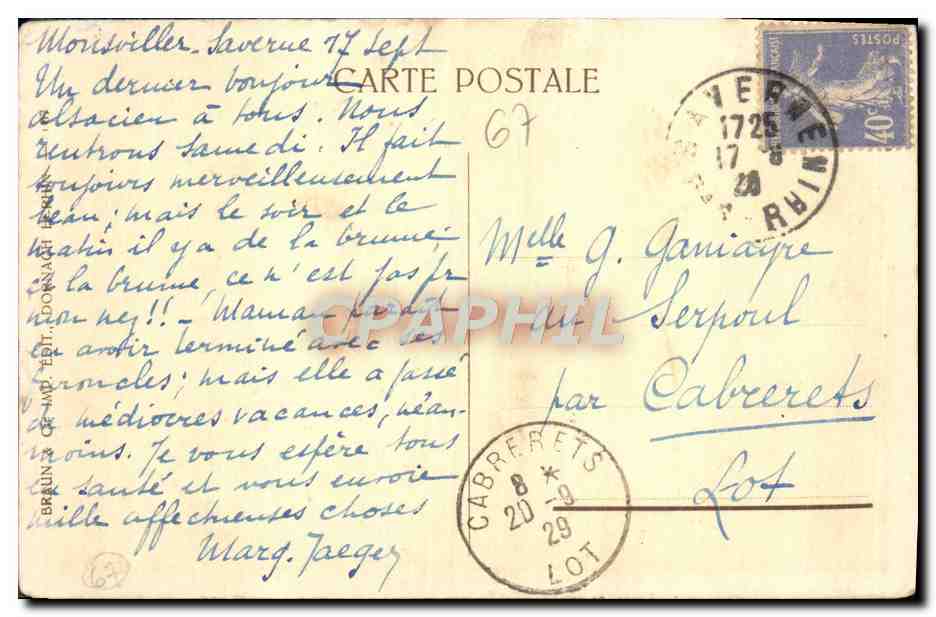 Monsviller. Saverne 17 Sept
Un dernier bonjour
alsacien à tous. Nous
rentrons samedi. Il fait
toujours merveilleusement
beau; mais le soir et le
matin il y a de la brume
et la brume, ce n'est pas pr
mon nez!! – Maman paraît
en avoir terminé avec ses
furoncles; mais elle a passé
de médiocres vacances, néan-
moins. Je vous espère tous
en santé et vous envoie
mille affectueuses choses
Marg. Jaeger
CARTE POSTALE
67
FRANÇAISE
POSTES
40c
1725
17 9
Melle G. Ganiayre
au Serpoul
par Cabrerets
Lot
CABRERETS
8 *
20 - 9
29
LOT
BRAUN & Cie IMP. ÉDIT., DORNACH
CPAPHIL
67